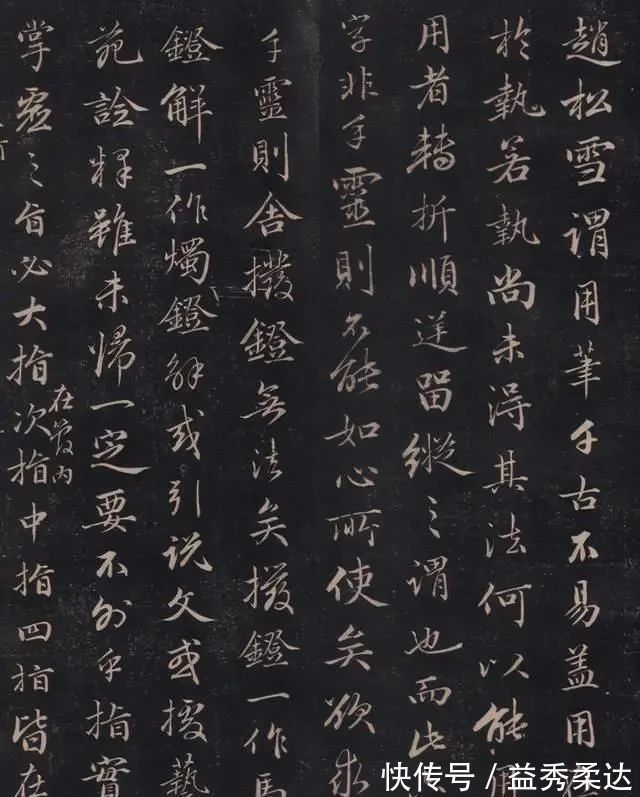 趙松雪謂用筆千古不易蓋用
於執若執尚未得其法何以能用
用者轉折順逆留縱之謂也而此
字非手靈則不能如心所使矣欲求
手靈則舍撥鐙無法矣撥鐙一作馬
鐙解一作燭鐙解或引說文或援藝
苑詮釋雖未歸一定要不外乎指實
掌虛之旨必大指次指在管內中指四指皆在
快传号 / 益秀柔达